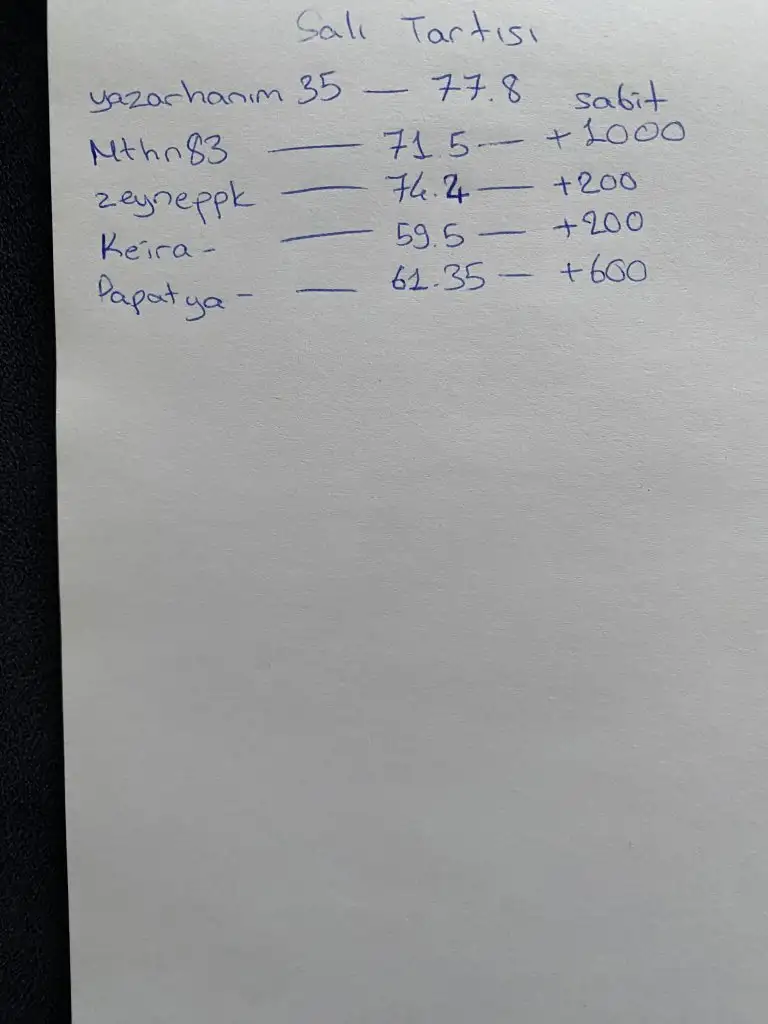 Salı Tartısı
yazarhanım 35 — 77.8 sabit
Mthn83 — 71.5 — +1000
zeyneppk — 74.2 — +200
Keira - — 59.5 — +200
Papatya - — 61.35 — +600